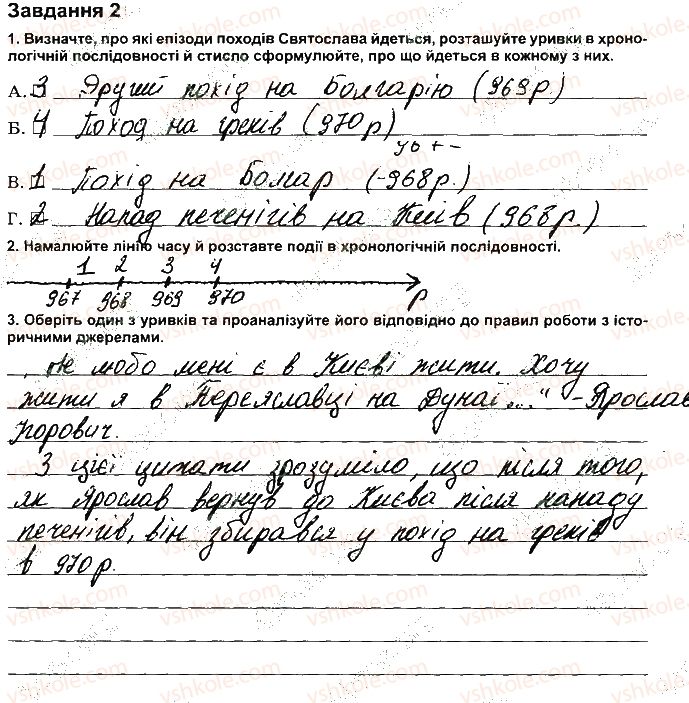 Завдання 2
1. Визначте, про які епізоди походів Святослава йдеться, розташуйте уривки в хроно-
логічній послідовності й стисло сформулюйте, про що йдеться в кожному з них.
А. 3 Другий похід на Болгарію (969р)
Б. 4 Поход на греків (970р)
В. 1 Похід на Болгар (-968р.)
Г. 2 Напад печенігів на Київ (968р.)
2. Намалюйте лінію часу й розставте події в хронологічній послідовності.
1 2 3 4
967 968 969 970 р
3. Оберіть один з уривків та проаналізуйте його відповідно до правил роботи з істо-
ричними джерелами.
„Не любо мені є в Києві жити. Хочу
жити я в Переяславці на Дунаї..." - Ярослав
Ігорович.
З цієї цитати зрозуміло, що після того,
як Ярослав вернув до Києва після нападу
печенігів, він збирався у похід на греків
в 970р.
vshkole.com